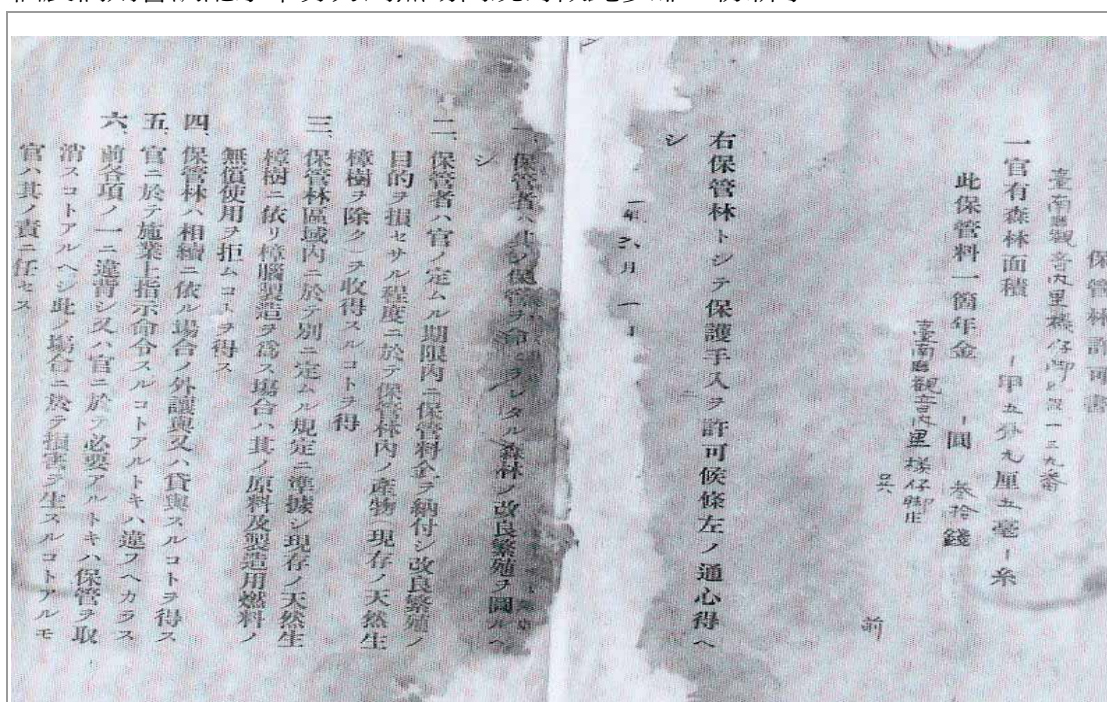 保管林許可書
臺南廳觀音內里檨仔脚
一三九番
一官有森林面積 一甲五分九厘五毫一糸
此保管料一箇年金 一圓 叁拾錢
臺南廳觀音內里檨仔脚庄
前
右保管林トシテ保護手入ヲ許可候條左ノ通心得ヘ
シ
年 六月 一日
一、保管者ハ其ノ保管ヲ命セラレタル森林ノ改良繁殖ヲ圖ルヘ
シ
二、保管者ハ官ノ定ムル期限內ニ保管料金ヲ納付シ改良繁殖ノ
目的ヲ損セサル程度ニ於テ保管林內ノ產物(現存ノ天然生
樟樹ヲ除ク)ヲ收得スルコトヲ得
三、保管林區域內ニ於テ別ニ定ムル規定ニ準據シ現存ノ天然生
樟樹ニ依リ樟腦製造ヲ爲ス場合ハ其ノ原料及製造用燃料ノ
無償使用ヲ拒ムコトヲ得ス
四、保管林ハ相續ニ依ル場合ノ外讓與又ハ貸與スルコトヲ得ス
五、官ニ於テ施業上指示命令スルコトアルトキハ違フヘカラス
六、前各項ノ一ニ違背シ又ハ官ニ於テ必要アルトキハ保管ヲ取
消スコトアルヘシ此ノ場合ニ於テ損害ヲ生スルコトアルモ
官ハ其ノ責ニ任セス